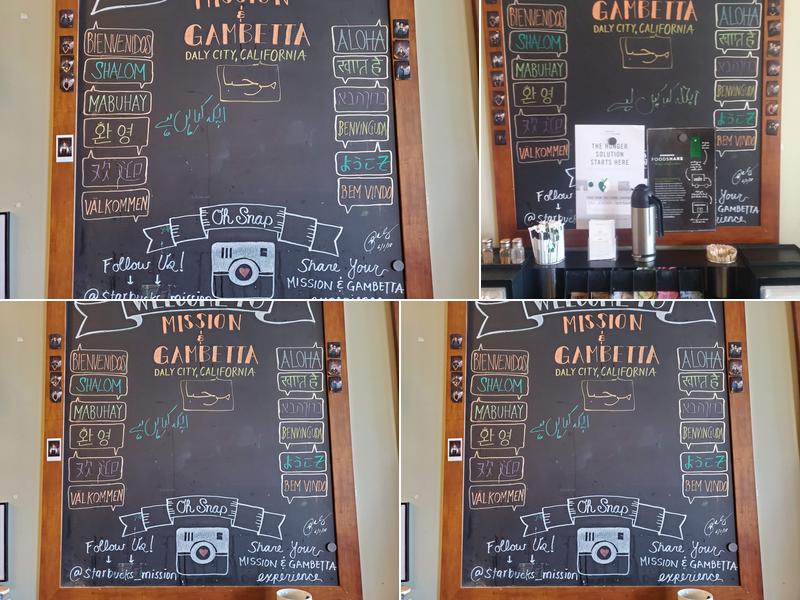 MISSION
&
GAMBETTA
DALY CITY, CALIFORNIA
مرحبا
BIENVENIDOS
SHALOM
MABUHAY
환영
VÄLKOMMEN
ALOHA
BENVINGUDA
ようこそ
BEM VINDO
Oh Snap
Follow Us!
@starbucks_mission
Share Your
MISSION & GAMBETTA
experience
GAMBETTA
DALY CITY, CALIFORNIA
مرحبا
BIENVENIDOS
SHALOM
MABUHAY
환영
VÄLKOMMEN
ALOHA
BENVINGUDA
ようこそ
BEM VINDO
THE HUNGER
SOLUTION
STARTS HERE
FOODSHARE
Follow
@starbucks
Your
GAMBETTA
WELCOME TO
MISSION
&
GAMBETTA
DALY CITY, CALIFORNIA
مرحبا
BIENVENIDOS
SHALOM
MABUHAY
환영
VÄLKOMMEN
ALOHA
BENVINGUDA
ようこそ
BEM VINDO
Oh Snap
Follow Us!
@starbucks_mission
Share Your
MISSION & GAMBETTA
experience
WELCOME TO
MISSION
&
GAMBETTA
DALY CITY, CALIFORNIA
مرحبا
BIENVENIDOS
SHALOM
MABUHAY
환영
VÄLKOMMEN
ALOHA
BENVINGUDA
ようこそ
BEM VINDO
Oh Snap
Follow Us!
@starbucks_mission
Share Your
MISSION & GAMBETTA
experience